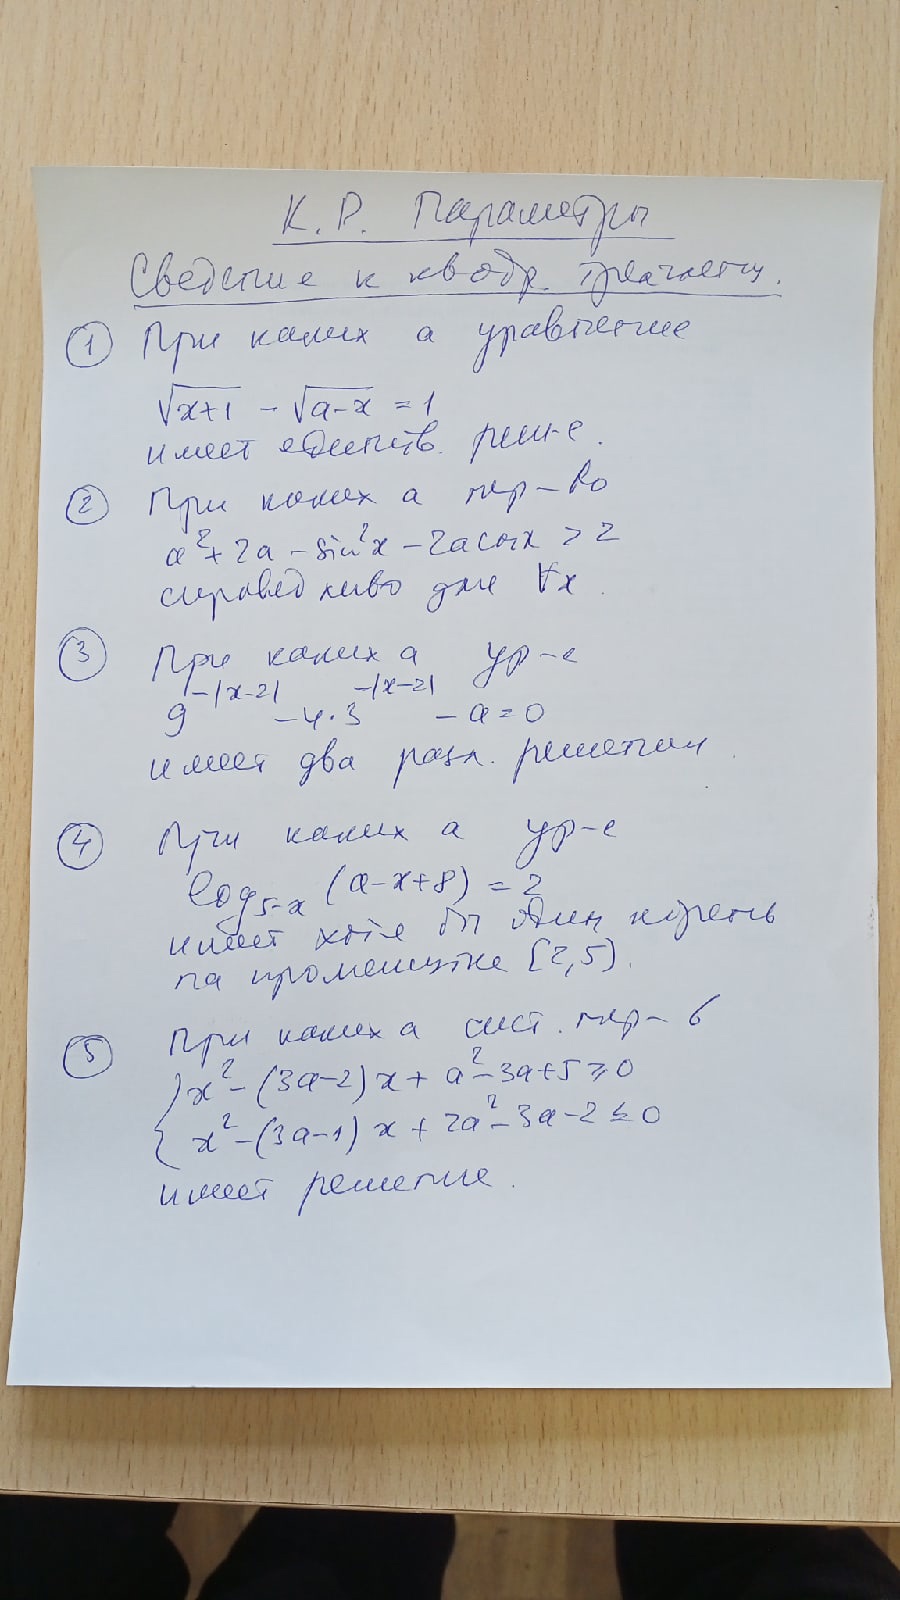 К.Р. Параметры
Сведение к квадр. трехчлену.
① При каких а уравнение
√x+1 - √a-x = 1
имеет единств. реш-е.
② При каких а нер-во
a² + 2a - sin²x - 2a cos x > 2
справедливо для ∀x.
③ При каких а ур-е
9^-|x-2| - 4·3^-|x-2| - a = 0
имеет два разл. решения.
④ При каких а ур-е
log₅₋ₓ (a-x+8) = 2
имеет хотя бы один корень
на промежутке [2,5).
⑤ При каких а сист. нер-в
{ x² - (3a-2)x + a² - 3a + 5 ≥ 0
x² - (3a-1)x + 2a² - 3a - 2 ≤ 0
имеет решение.